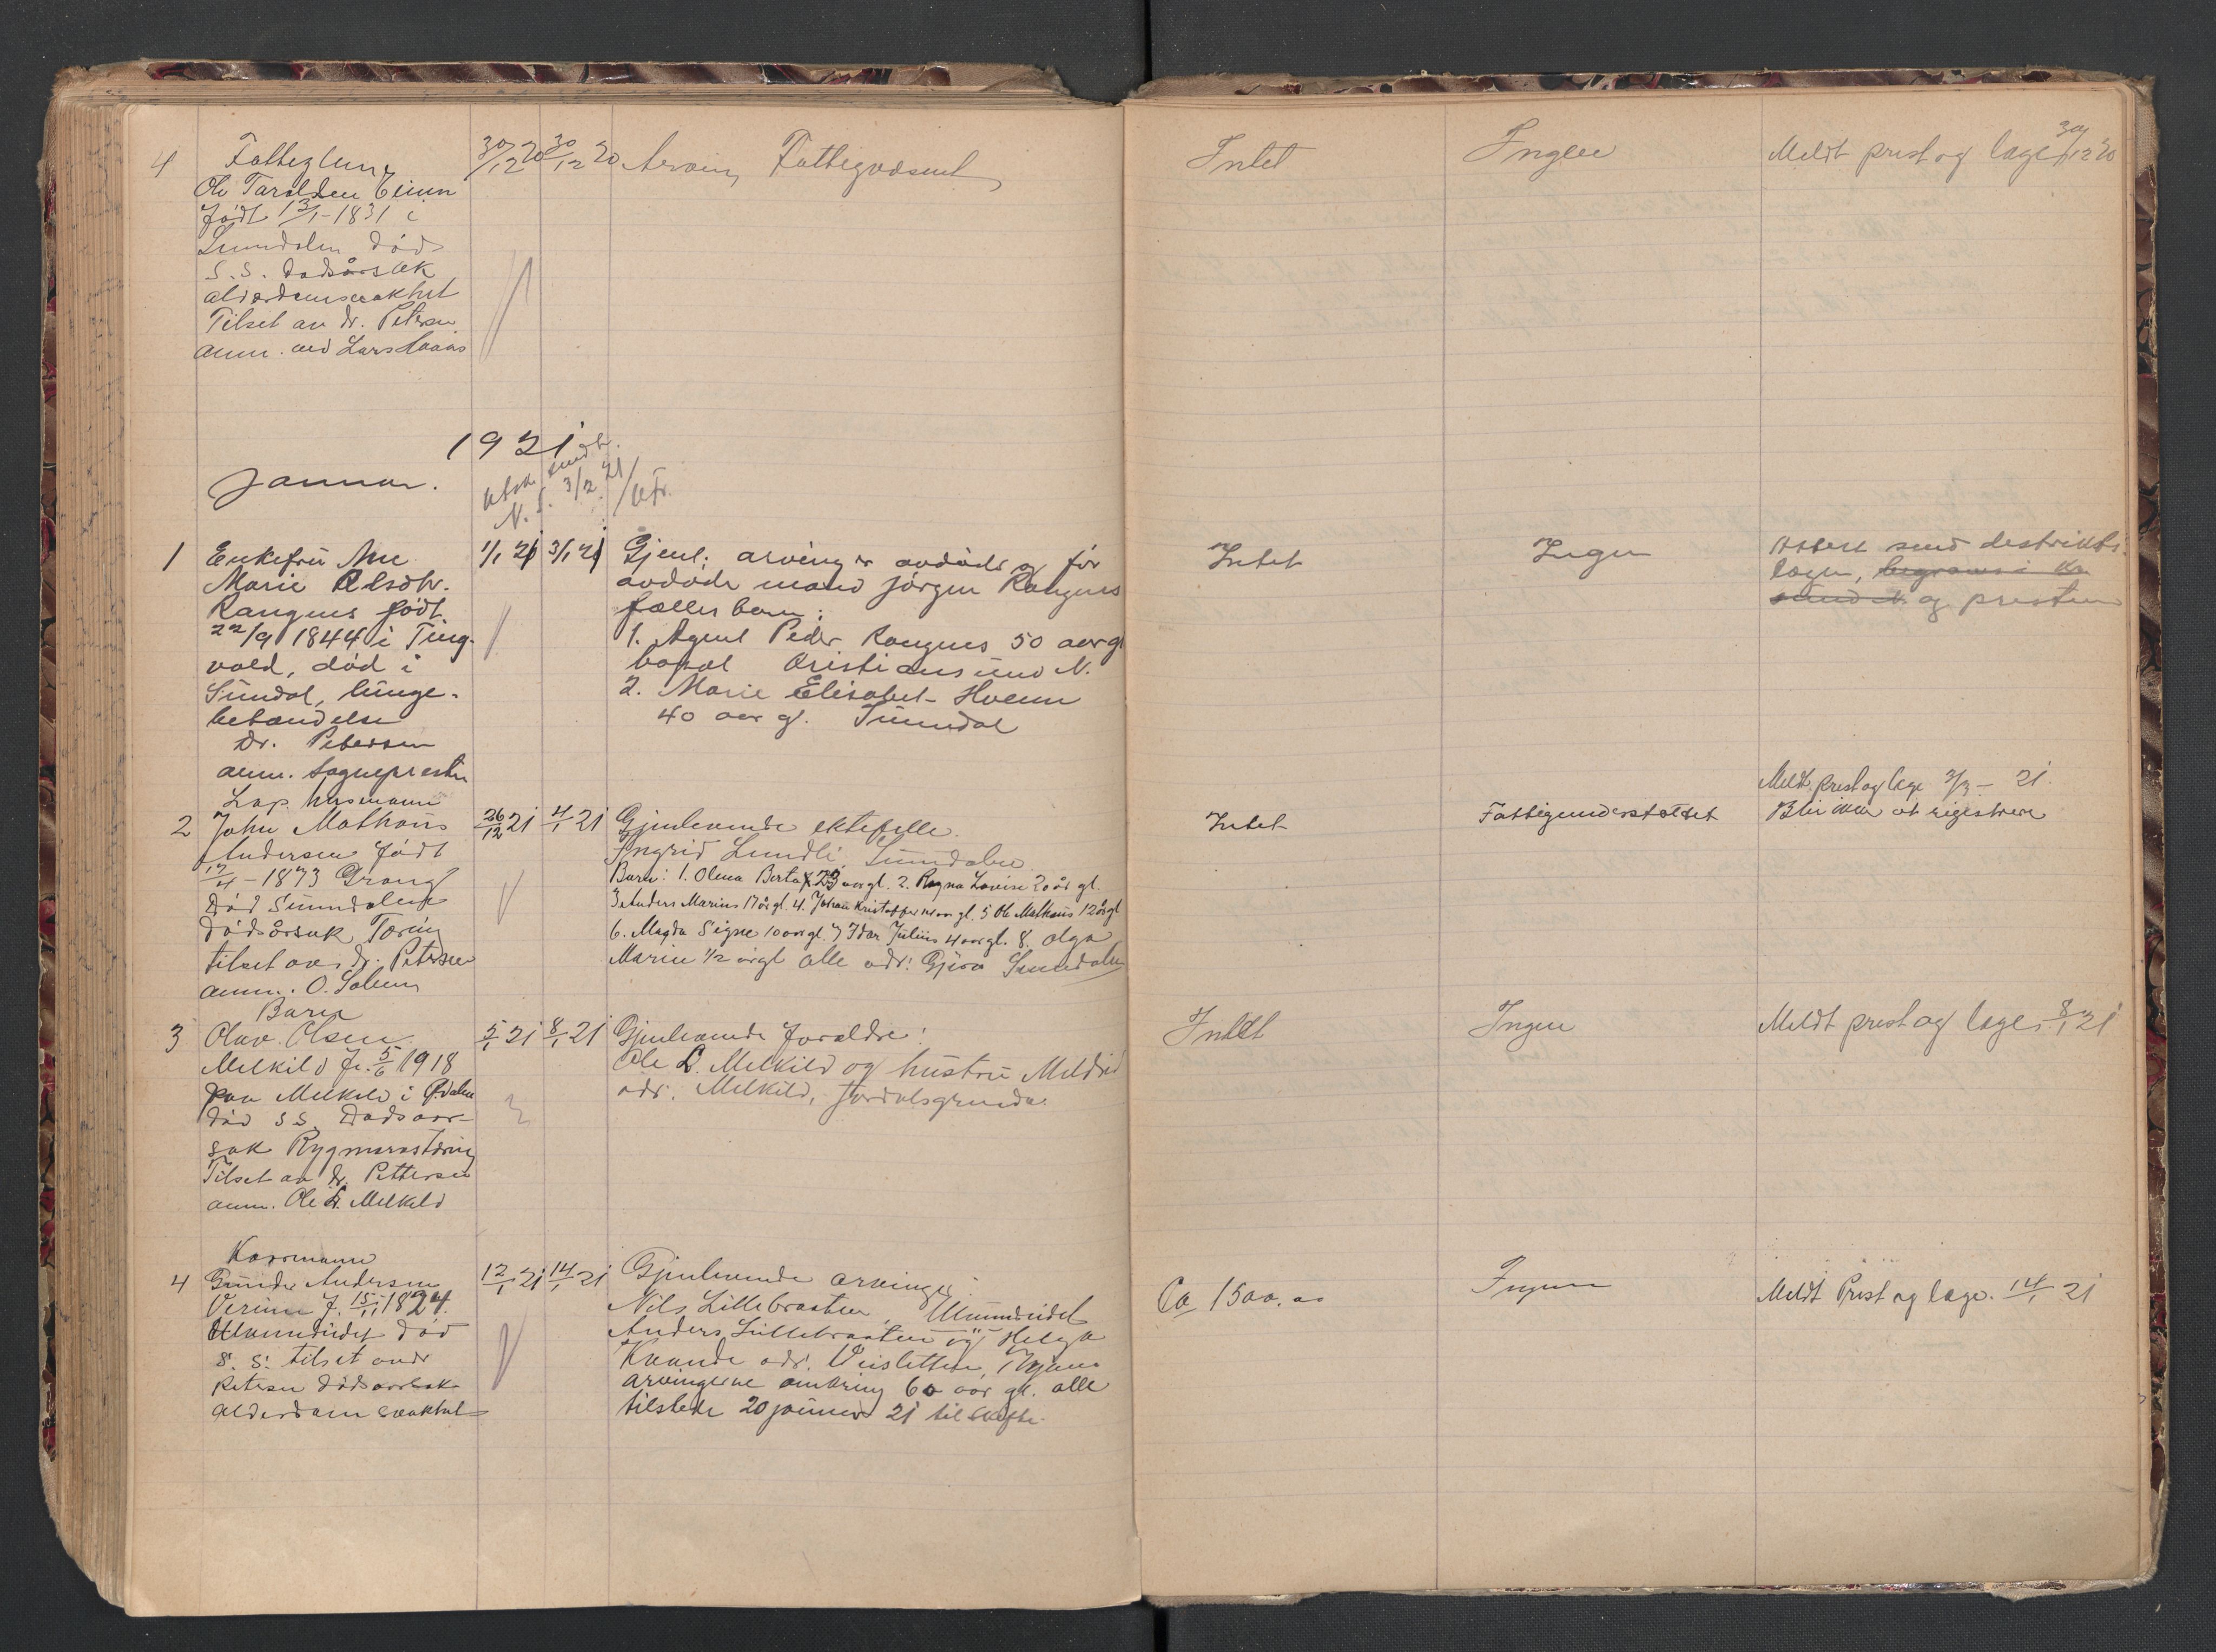 4
Fattiglem
Ole Taralsen
Født 13/1-1831 i
Sunndalen død
S.S. dødsårsak
alderdomssvakhet
Tilset av dr. Petersen
anm. ved Lars
30/12 20 30/12 20
Arving Fattigvæsenet
Intet
Ingen
Meldt prest og læge 30/12 20
1921
Januar.
Utsk. sendt
N. S. 3/2 21
1
Enkefru Ane
Marie Olsdtr.
Rangnes født
22/9 1844 i Ting-
vold, død i
Sundal, lunge-
betændelse
Dr. Petersen
anm. sognepresten
1/1 21 3/1 21
Gjenl. arving er avdøde og før
avdøde mand Jørgen Rangnes
fælles barn:
1. Agent Peder Rangnes 50 aar gl
bopæl Kristiansund N.
2. Marie Elisabet Hoem
40 aar gl. Sunndal
Intet
Ingen
Attest send destrikts-
lægen, begraves i Kr.
sund N. og presten
2
husmann
John Mathæus
Andersen født
17/4-1873 Grang
Død Sunndalen
dødsårsak Tæring
tilset av dr. Petersen
anm. O. Solem
26/12 21 4/1 21
Gjenlevende ektefelle.
Ingrid Lundli, Sunndalen
Barn: 1. Olena Berta 23 aar gl. 2. Ragna Lovise 20 år gl.
3 Anders Marius 17 år gl. 4. Johan Kristoffer 14 aar gl. 5 Ole Mathæus 12 år gl
6. Magda Signe 10 aar gl. 7 Idar Julius 4 aar gl. 8. Olga
Marie 1/2 år gl alle adr: Gjøra Sunndalen
Intet
Fattigunderstøttet
Meldt prest og læge 3/3 - 21.
Blir ikke at rigestrere
3
Barn
Olav Olsen
Melkild f. 5/6 1918
paa Melkild i Ø.dalen
død s s. Dødsaar-
sak Rygmarvstæring
Tilset av dr. Pettersen
anm. Ole L. Melkild
5/1 21 8/1 21
Gjenlevende foraldre:
Ole L. Melkild og hustru Meldrid
adr. Melkild, Jordalsgrenda.
Intet
Ingen
Meldt prest og læge 8/1 21
4
Kaarmann
Gunder Andersen
Verinn f. 15/11 1824.
Ulvundeidet død
s. s. tilset av dr
Petersen dødsaarsak
alderdomssvakhet
12/1 21 14/1 21
Gjenlevende arvinger:
Nils Lillebraaten, Ulvundeidet
Anders Lillebraaten og Helga
Kvande adr.
arvingerne omkring 60 aar gl. alle
tilstede 20 januar 21 til skifte.
Ca 1500.00
Ingen
Meldt Prest og læge. 14/1 21